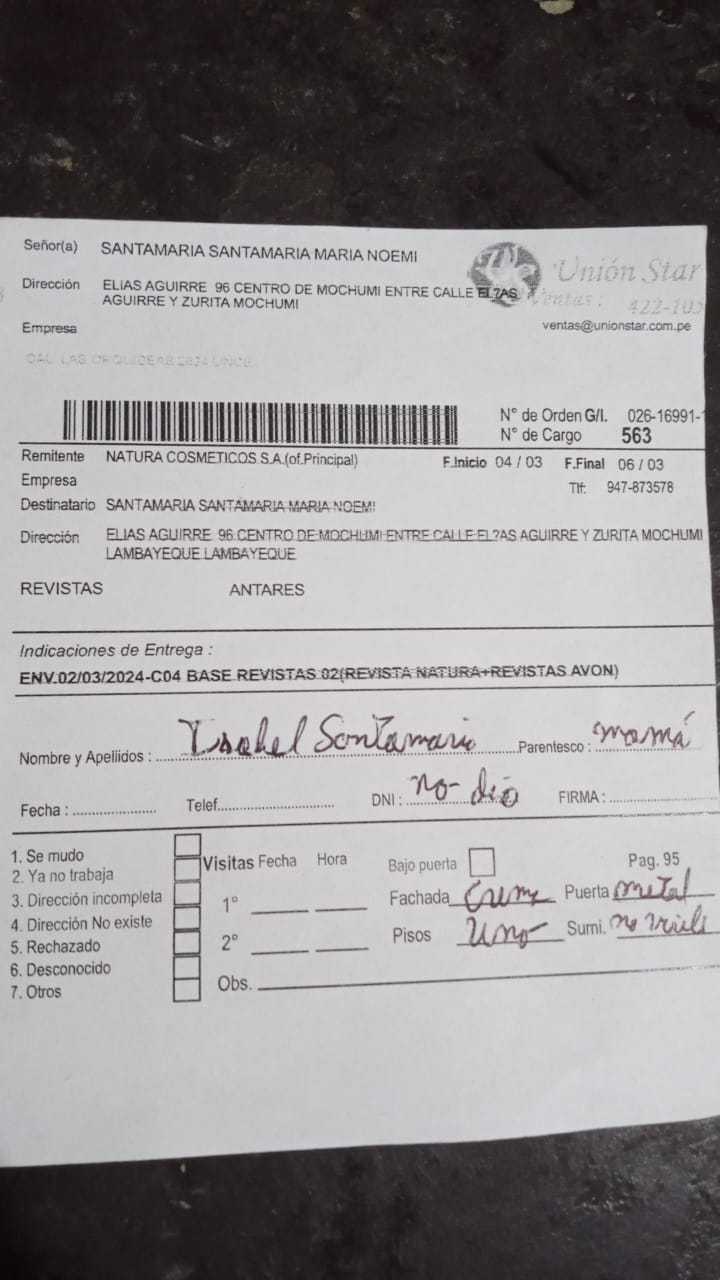 Señor(a) SANTAMARIA SANTAMARIA MARIA NOEMI
Unión Star
Dirección ELIAS AGUIRRE 96 CENTRO DE MOCHUMI ENTRE CALLE EL?AS
AGUIRRE Y ZURITA MOCHUMI
Ventas : 422-105
Empresa
ventas@unionstar.com.pe
N° de Orden G/I. 026-16991-1
N° de Cargo 563
Remitente NATURA COSMETICOS S.A.(of.Principal)
F.Inicio 04 / 03 F.Final 06 / 03
Empresa
Tlf: 947-873578
Destinatario SANTAMARIA SANTAMARIA MARIA NOEMI
Dirección ELIAS AGUIRRE 96 CENTRO DE MOCHUMI ENTRE CALLE EL?AS AGUIRRE Y ZURITA MOCHUMI
LAMBAYEQUE LAMBAYEQUE
REVISTAS ANTARES
Indicaciones de Entrega :
ENV.02/03/2024-C04 BASE REVISTAS 02(REVISTA NATURA+REVISTAS AVON)
Nombre y Apellidos : Isabel Santamaria Parentesco : mamá
Fecha : Telef. DNI : no dio FIRMA :
1. Se mudo
2. Ya no trabaja
3. Dirección incompleta
4. Dirección No existe
5. Rechazado
6. Desconocido
7. Otros
Visitas Fecha Hora
1°
2°
Obs.
Bajo puerta Pag. 95
Fachada Creme Puerta metal
Pisos Uno Sumi. no